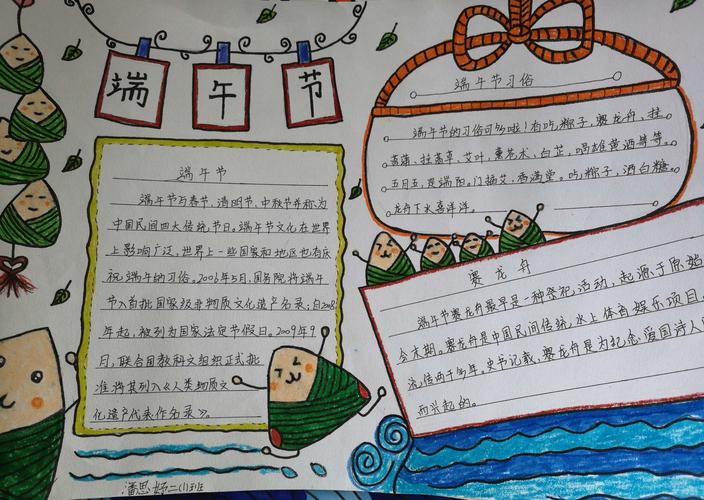 端午节
端午节
端午节与春节、清明节、中秋节并称为
中国民间四大传统节日。端午节文化在世界
上影响广泛,世界上一些国家和地区也有庆
祝端午的习俗。2006年5月,国务院将端午
节入首批国家级非物质文化遗产名录;自2008
年起,被列为国家法定节假日。2009年9
月,联合国教科文组织正式批
准将其列入《人类物质文
化遗产代表作名录》。
端午节习俗
端午节的习俗可多啦!有吃粽子,赛龙舟、挂
菖蒲、挂蒿草、艾叶,薰苍术、白芷,喝雄黄酒等。
五月五,是端阳。门插艾,香满堂。吃粽子,洒白糖。
龙舟下水喜洋洋。
赛龙舟
端午节赛龙舟最早是一种祭祀活动,起源于原始
会末期。赛龙舟是中国民间传统水上体育娱乐项目,
流传两千多年。史书记载,赛龙舟是为纪念爱国诗人
而兴起的。
潘思妤二(1)班